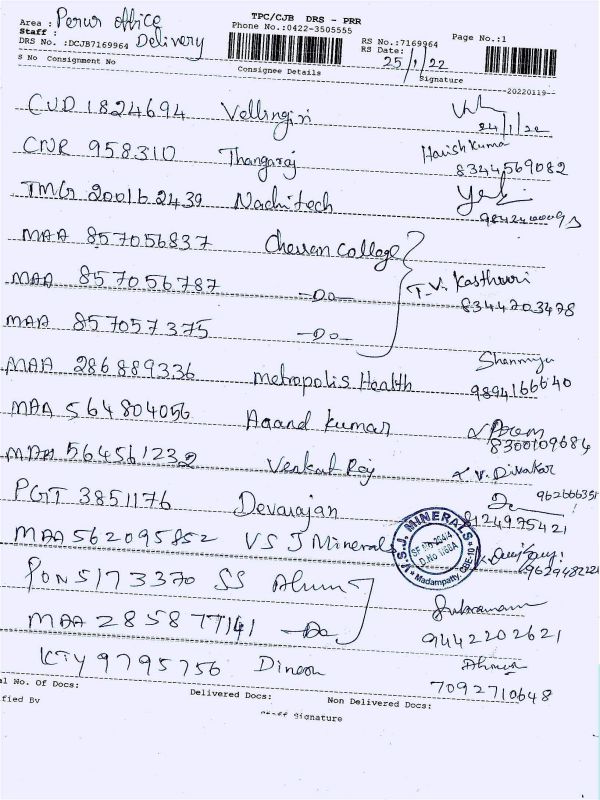 TPC/CJB DRS - PRR
Area : Perur office
Phone No.:0422-3505555
Staff :
RS No.:7169964 Page No.:1
DRS No. :DCJB7169964 Delivery
RS Date: 25/1/22
S No Consignment No Consignee Details Signature
20220119
CUD 1824694 Vellingiri
24/1/22
CNR 958310 Thangaraj Harish Kuma
8344569082
TMG 200162439 Nachitech
MAA 857056837 Cheran College
MAA 857056787 -Do- T.V. Kasthuri
8344703478
MAA 857057375 -Do-
MAA 286889336 Metropolis Health
9894166640
MAA 564804056 Anand Kumar
8300109684
MAA 564561232 Venkat Raj V. Divakar
PGT 3851176 Devarajan
8124975421
MAA 562095852 VSJ Minerals
V.S.J. MINERALS
Madampatty, CBE-10
PON 5173370 SS Alum
MAA 285877141 -Do-
9442202621
KTY 9795756
7092710648
al No. Of Docs: Delivered Docs: Non Delivered Docs:
ified By Signature